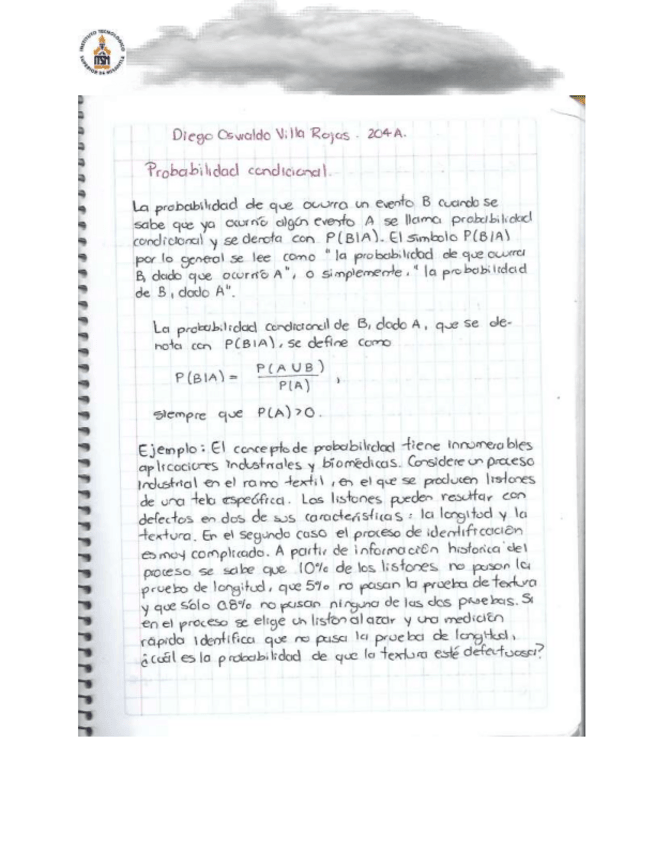 INSTITUTO TECNOLÓGICO
ITSM
Diego Oswaldo Villa Rojas. 204A.
Probabilidad condicional.
La probabilidad de que ocurra un evento B cuando se
sabe que ya ocurrió algún evento A se llama probabilidad
condicional y se denota con P(B|A). El símbolo P(B|A)
por lo general se lee como "la probabilidad de que ocurra
B, dado que ocurrió A", o simplemente, "la probabilidad
de B, dado A".
La probabilidad condicional de B, dado A, que se de-
nota con P(B|A), se define como
P(B|A) = P(A∪B) / P(A) ,
siempre que P(A)>0.
Ejemplo: El concepto de probabilidad tiene innumerables
aplicaciones industriales y biomédicas. Considere un proceso
industrial en el ramo textil, en el que se producen listones
de una tela específica. Los listones pueden resultar con
defectos en dos de sus características: la longitud y la
textura. En el segundo caso el proceso de identificación
es muy complicado. A partir de información historica del
proceso se sabe que 10% de los listones no pasan la
prueba de longitud, que 5% no pasan la prueba de textura
y que sólo 0.8% no pasan ninguna de las dos pruebas. Si
en el proceso se elige un liston al azar y una medición
rápida identifica que no pasa la prueba de longitud,
¿cuál es la probabilidad de que la textura esté defectuosa?